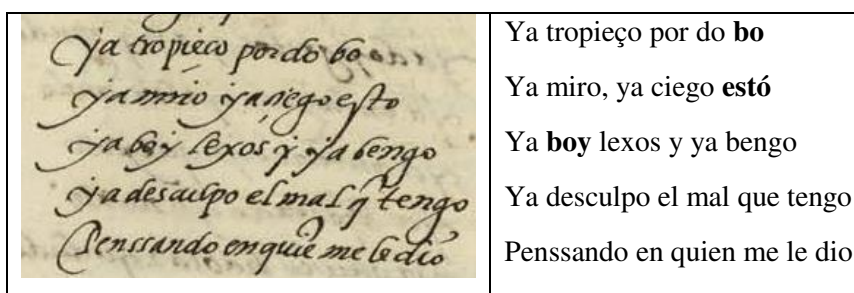 ya tropieço por do bo
ya miro ya ciego esto
ya boy lexos y ya bengo
ya desculpo el mal q̃ tengo
Penssando en quiē me le dio
Ya tropieço por do bo
Ya miro, ya ciego estó
Ya boy lexos y ya bengo
Ya desculpo el mal que tengo
Penssando en quien me le dio